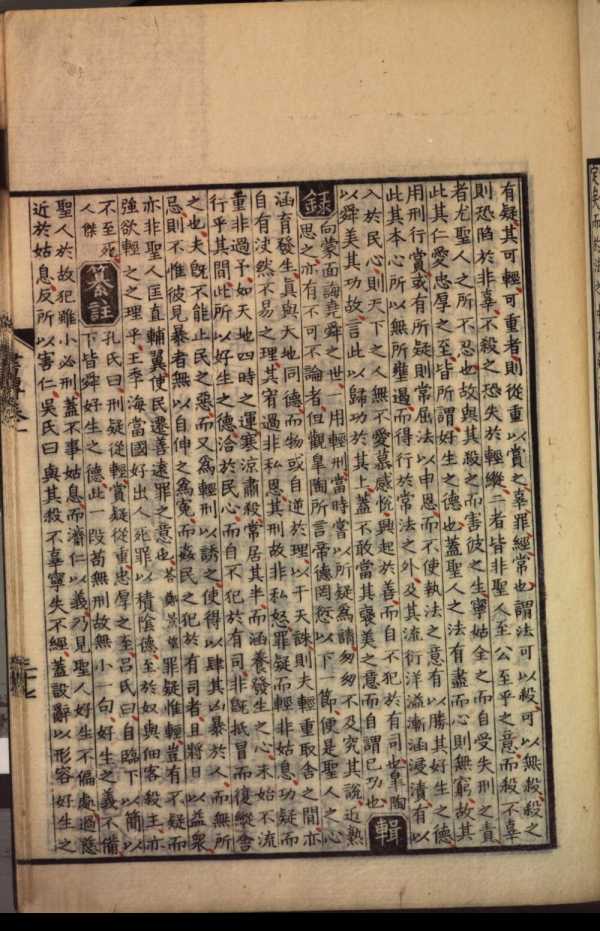 有疑其可輕可重者則從重以賞之辜罪經常也謂法可以殺可以無殺殺之
則恐陷於非辜不殺之恐失於輕縱二者皆非聖人至公至平之意而殺不辜
者尤聖人之所不忍也故與其殺之而害彼之生寧姑全之而自受失刑之責
此其仁愛忠厚之至皆所謂好生之德也蓋聖人之法有盡而心則無窮故其
用刑行賞或有所疑則常屈法以申恩而不使執法之意有以勝其好生之德
此其本心所以無所壅遏而得行於常法之外及其流衍洋溢漸涵浸漬有以
入於民心則天下之人無不愛慕感悅興起於善而自不犯於有司也皐陶
以舜美其功故言此以歸功於其上蓋不敢當其褒美之意而自謂已功也
輯
錄
向蒙面誨堯舜之世一用輕刑當時嘗以所疑為請匆匆不及究其說近熟
思之亦有不可不論者但觀皐陶所言帝德罔愆以下一節便是聖人之心
涵育發生真與天地同德而物或自逆於理以干天誅則夫輕重取舍之間亦
自有決然不易之理其宥過非私恩其刑故非私怒罪疑而輕非姑息功疑而
重非過予如天地四時之運寒涼肅殺常居其半而涵養發生之心未始不流
行乎其間此所以好生之德洽於民心而自不犯於有司非既抵冒而復縱舍
之也夫既不能止民之惡而又為輕刑以誘之使得以肆其凶暴於人而無所
忌則不惟彼見暴者無以自伸之為冤而姦民之犯於有司者且將日以益衆
亦非聖人匡直輔翼使民遷善遠罪之意也 答鄭景望 罪疑惟輕豈有不疑而
強欲輕之之理乎王季海當國好出人死罪以積陰德至於奴與佃客殺主亦
不至死
人傑
纂註
孔氏曰刑疑從輕賞疑從重忠厚之至呂氏曰自臨下以簡以
下皆舜好生之德此一段苟無刑故無小一句好生之義不備
聖人於故犯雖小必刑蓋不事姑息而濟仁以義乃見聖人好生不偏處過慈
近於姑息反所以害仁吳氏曰與其殺不辜寧失不經蓋設辭以形容好生之
書傳卷一
二十七